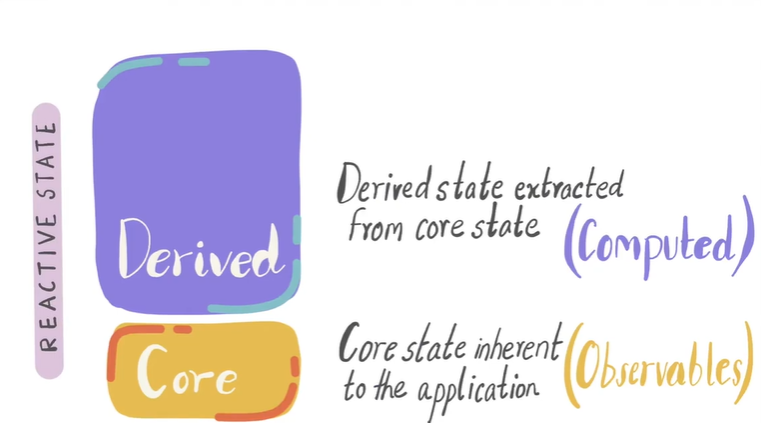 REACTIVE STATE
Derived
Derived state extracted
from core state (Computed)
Core
Core state inherent (Observables)
to the application